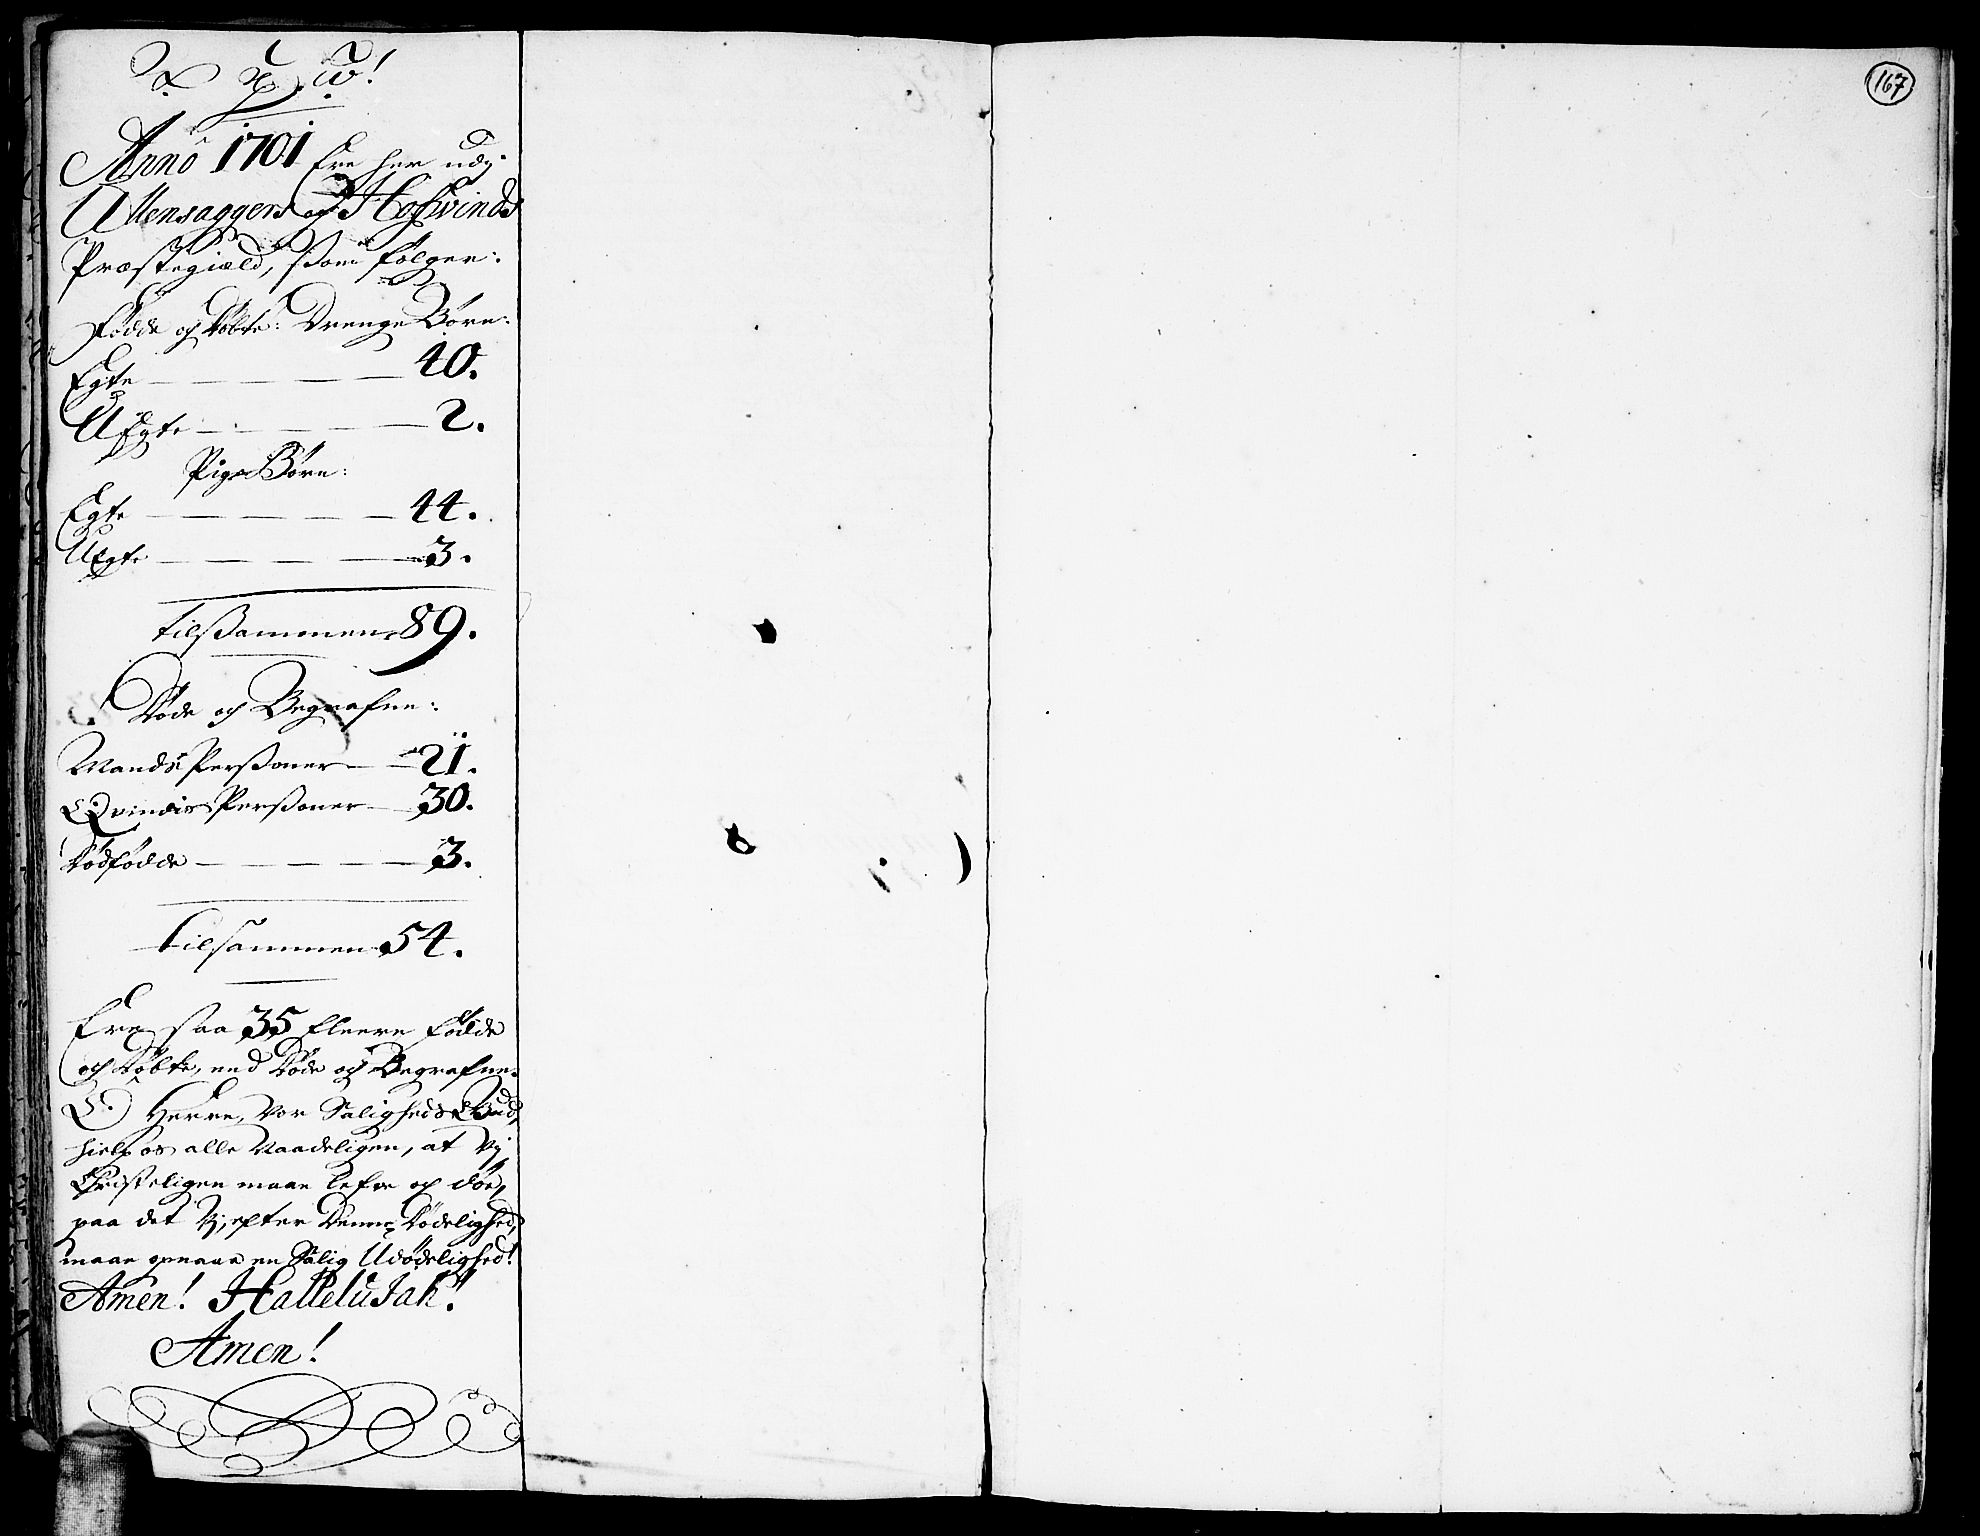 167
Anno 1701 Ere her udj
Ullensaggers og Hofwinds
Præstegiæld, ßom følger:
Fødde og Døbte: Drenge Børn:
Egte 40.
UEgte 2.
Pige Børn:
Egte 44.
UEgte 3.
tilßammen 89.
Døde og Begrafne:
Mands Perßoner 21.
Qvindis Perßoner 30.
Dødfødde 3.
tilsammen 54.
Ere saa 35 fleere fødde
och Døbte, end Døde och Begrafne.
O Herre, Vor Saligheds Gud,
hielp os alle Naadeligen, at Vj
Christeligen maae lefve og døe,
paa det Vj, efter Denne Dødelighed,
maae opnaae en Salig Udødelighed!
Amen! HalleluJah!
Amen!